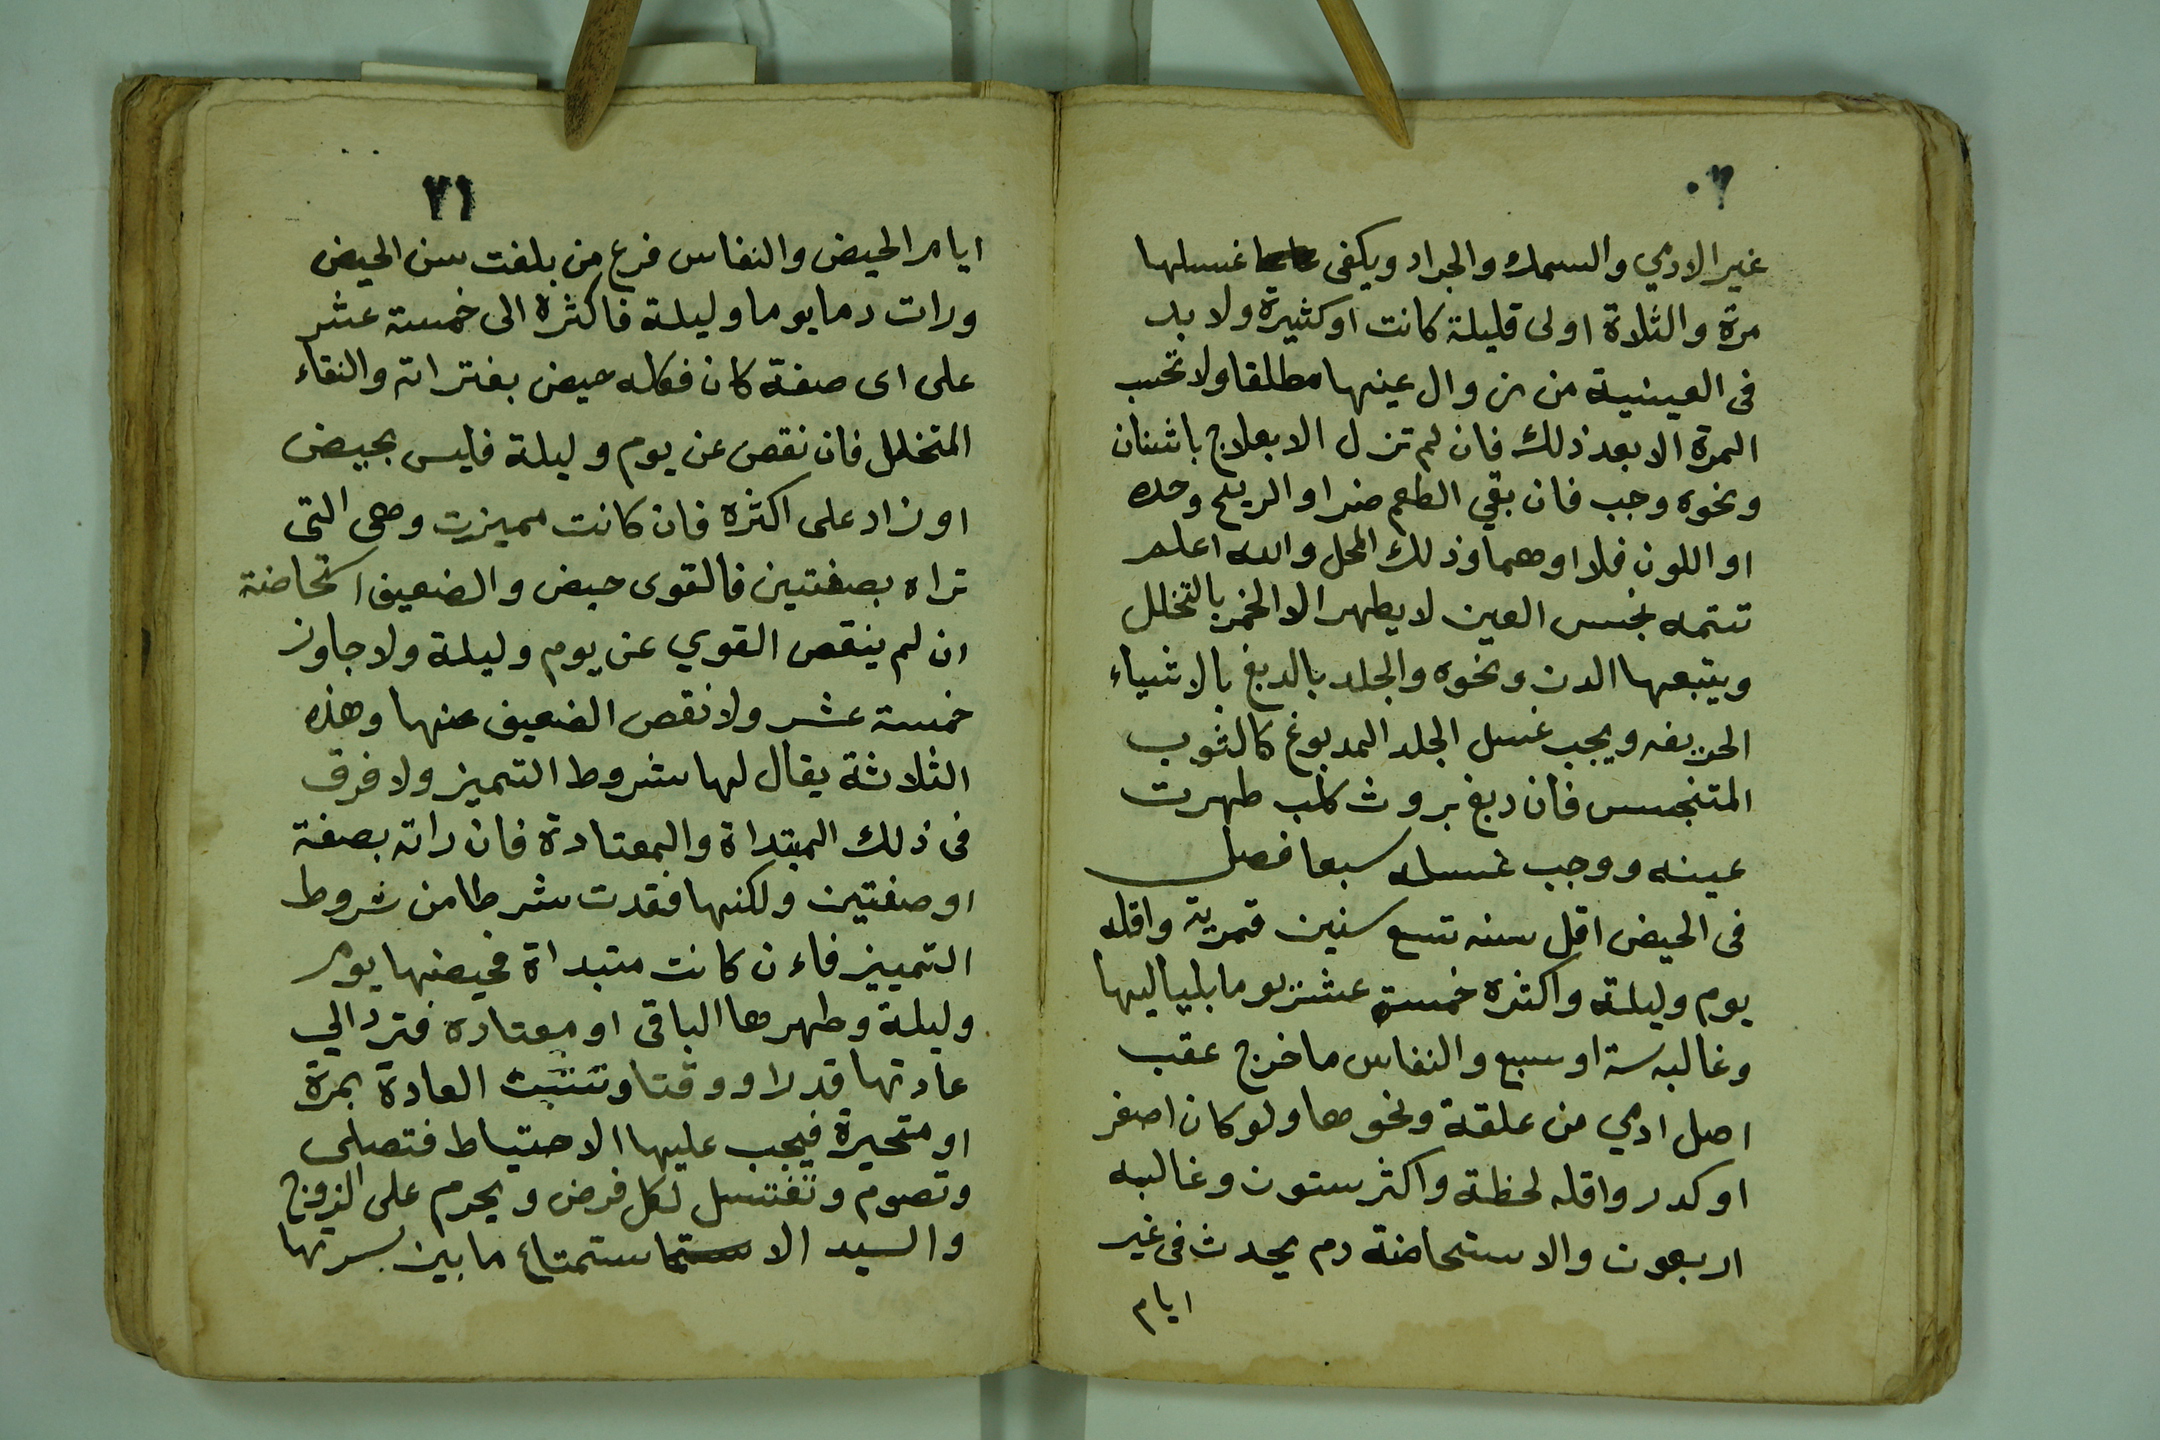 ٠٢
غير الادمي والسمك والجراد ويكفى غسلها
مرة والثلاثة اولى قليلة كانت اوكثيرة ولا بد
فى العينية من زوال عينها مطلقا ولا تحسب
المرة الا بعد ذلك فان لم تزل الا بعلاج باشنان
ونحوه وجب فان بقي الطعم ضر او الريح وحده
او اللون فلا اوهما وذلك المحل والله اعلم
تتمه نجس العين لا يطهر الا الخمر بالتخلل
ويتبعها الدن ونحوه والجلد بالدبغ بالاشياء
الحريفه ويجب غسل الجلد المدبوغ كالثوب
المتنجس فان دبغ بروث كلب طهرت
عينه ووجب غسله سبعا فصل
فى الحيض اقل سنه تسع سنين قمرية واقله
يوم وليلة واكثره خمسة عشر يوما بلياليها
وغالبه ستة او سبع والنفاس ما خرج عقب
اصل ادمي من علقة ونحوها ولو كان اصفر
او كدر واقله لحظة واكثر ستون وغالبه
اربعون والاستحاضة دم يحدث فى غير
ايام
٢١
ايام الحيض والنفاس فرع من بلغت سن الحيض
ورات دما يوما وليلة فاكثره الى خمسة عشر
على اى صفة كان فكله حيض بفتراته والنقاء
المتخلل فان نقص عن يوم وليلة فليس بحيض
او زاد على اكثره فان كانت مميزت وهى التى
تراه بصفتين فالقوى حيض والضعيف استحاضة
ان لم ينقص القوي عن يوم وليلة ولا جاوز
خمسة عشر ولا نقص الضعيف عنها وهذه
الثلاثة يقال لها شروط التميز ولا فرق
فى ذلك المبتداة والمعتادة فان راته بصفة
او صفتين ولكنها فقدت شرطا من شروط
التمييز فاءن كانت متبداة فحيضها يوم
وليلة وطهرها الباقى او معتاده فترد الي
عادتها قدرا ووقتا وتثبت العادة بمرة
او متحيرة فيجب عليها الاحتياط فتصلى
وتصوم وتغتسل لكل فرض ويحرم على الزوج
والسيد الاستمتاع ما بين سرتها